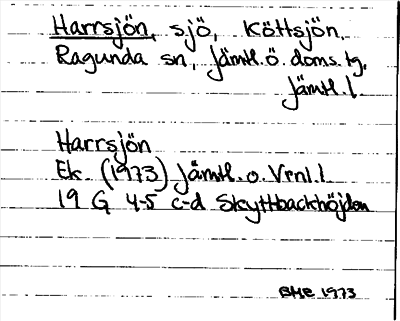 Harrsjön, sjö, Köttsjön,
Ragunda sn, Jämtl. ö. doms. tg,
Jämtl. l.
Harrsjön
Ek. (1973) Jämtl. o. Vrnl. l.
19 G 4-5 c-d Skyttbackhöjden
BHB 1973